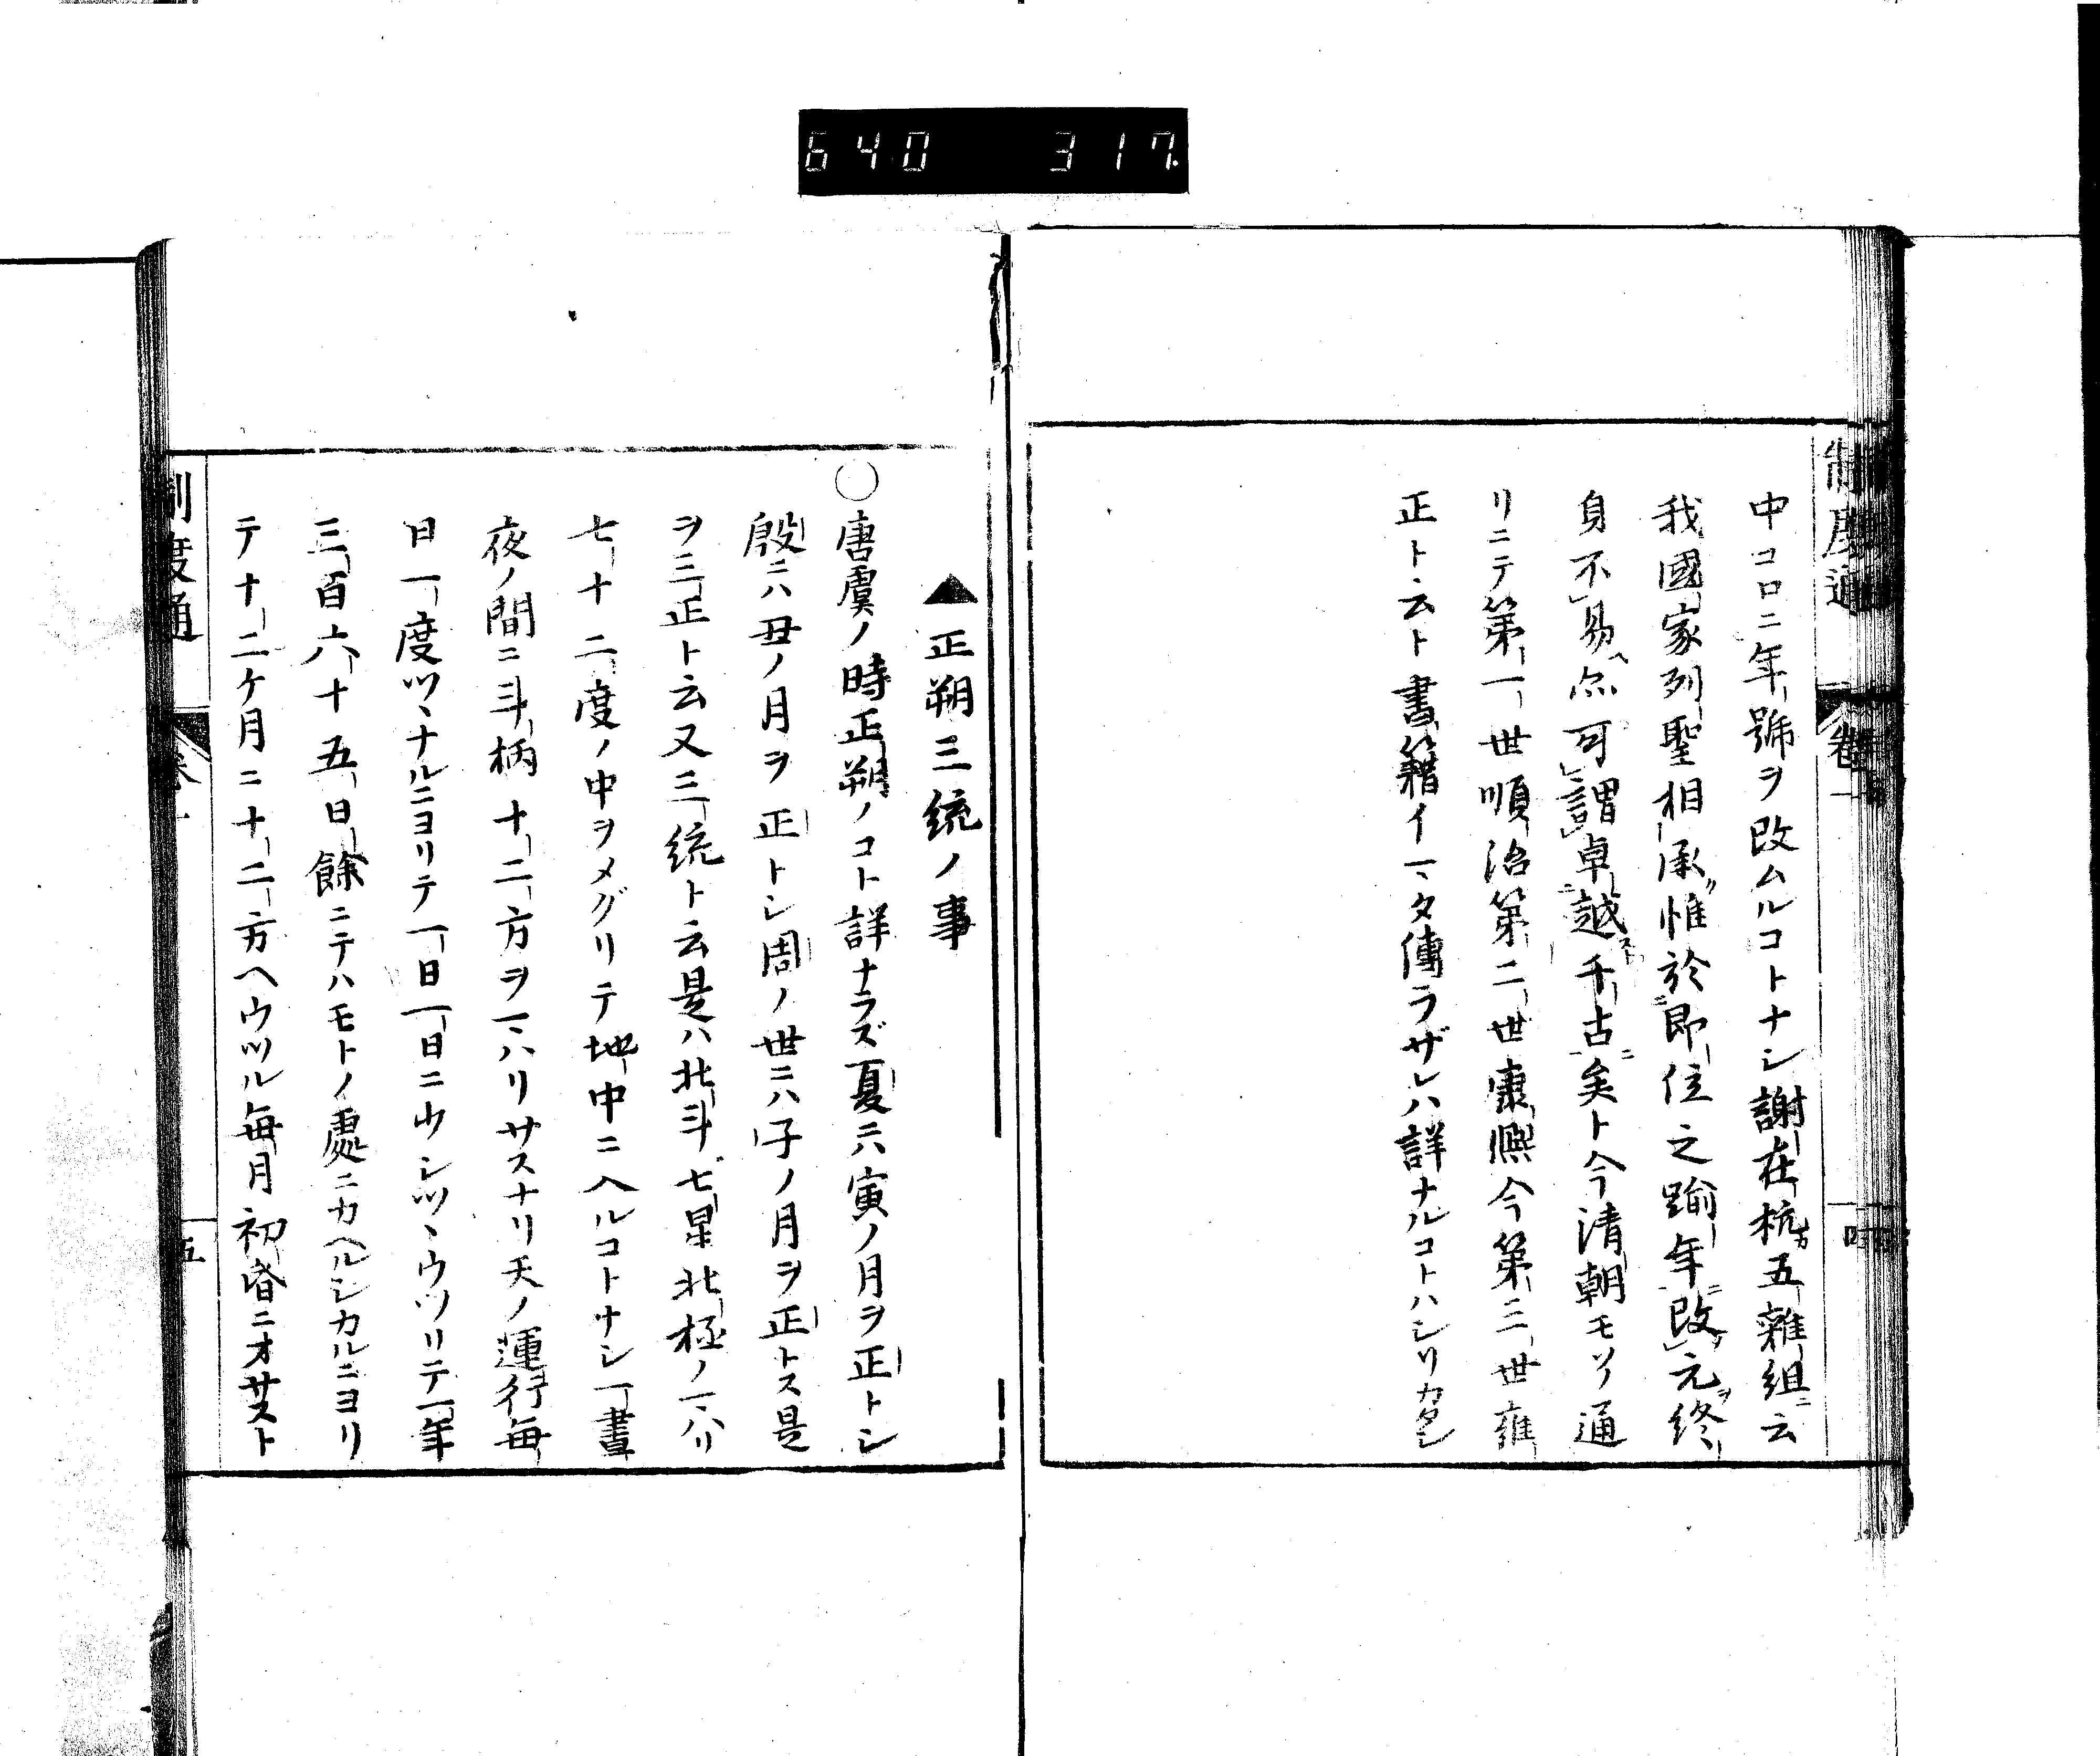 640 317.
制度通 卷一 四
中コロニ年號ヲ改ムルコトナシ謝在杭五雜組ニ云
我國家列聖相承惟於即位之踰年改元終
身不易亦可謂卓越千古矣ト今清朝モソノ通
リニテ第一世順治第二世康熙今第三世雍
正ト云ト書籍イマタ傳ラザレハ詳ナルコトハシリカタシ
▲正朔三統ノ事
○唐虞ノ時正朔ノコト詳ナラズ夏ニハ寅ノ月ヲ正トシ
殷ニハ丑ノ月ヲ正トシ周ノ世ニハ子ノ月ヲ正トス是
ヲ三正ト云又三統ト云是ハ北斗七星北極ノマハリ
七十二度ノ中ヲメグリテ地中ニ入ルコトナシ一晝
夜ノ間ニ斗柄十二方ヲマハリサスナリ天ノ運行毎
日一度ツヽナルニヨリテ一日一日ニ少シツヽウツリテ一年
三百六十五日餘ニテハモトノ處ニカヘルシカルニヨリ
テ十二ケ月ニ十二方ヘウツル毎月初昏ニオサスト
制度通 卷一 五